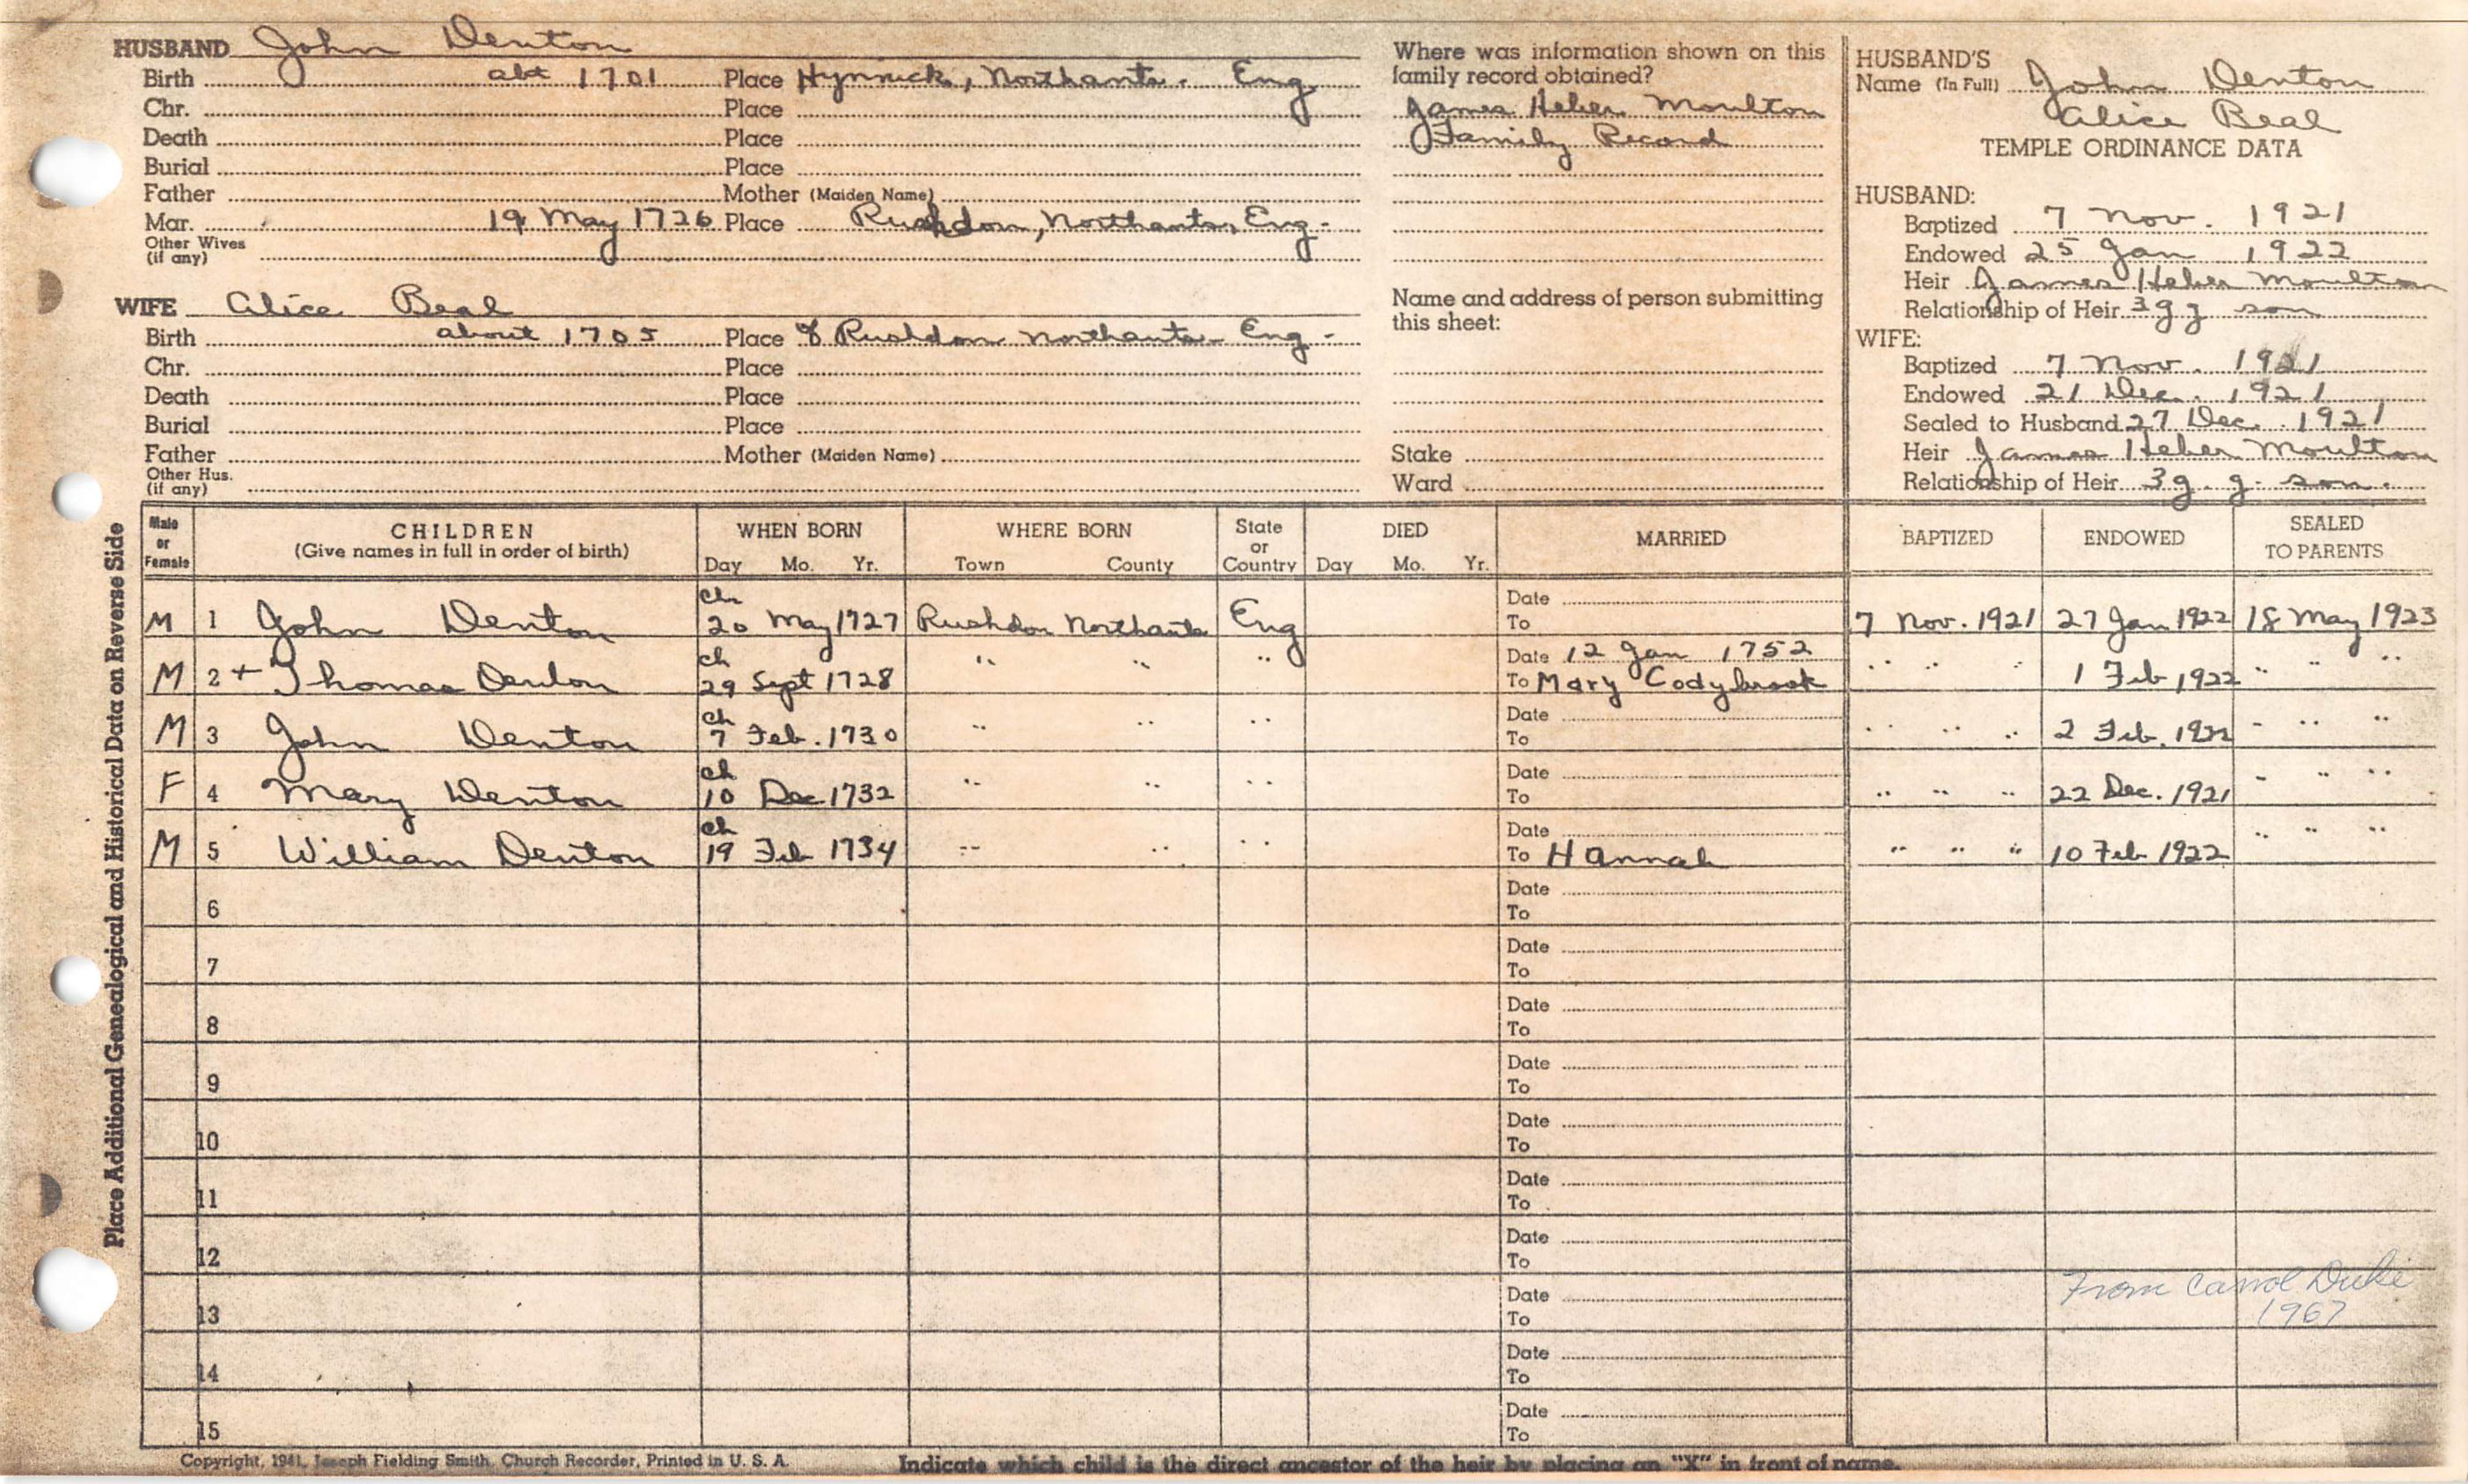 HUSBAND John Denton
Birth abt 1701 Place Hynwick, Northants. Eng
Chr. Place
Death Place
Burial Place
Father Mother (Maiden Name)
Mar. 19 May 1726 Place Rushdon, Northants, Eng.
Other Wives
(if any)
WIFE Alice Beal
Birth about 1705 Place of Rushdon Northants. Eng.
Chr. Place
Death Place
Burial Place
Father Mother (Maiden Name)
Other Hus.
(if any)
Where was information shown on this
family record obtained?
James Heber Moulton
Family Record
Name and address of person submitting
this sheet:
Stake
Ward
HUSBAND'S
Name (In Full) John Denton
Alice Beal
TEMPLE ORDINANCE DATA
HUSBAND:
Baptized 7 Nov. 1921
Endowed 25 Jan 1922
Heir James Heber Moulton
Relationship of Heir 3 g g son
WIFE:
Baptized 7 Nov. 1921
Endowed 21 Dec. 1921
Sealed to Husband 27 Dec. 1921
Heir James Heber Moulton
Relationship of Heir 3 g. g. son.
Place Additional Genealogical and Historical Data on Reverse Side
Male or Female CHILDREN (Give names in full in order of birth) WHEN BORN Day Mo. Yr. WHERE BORN Town County State or Country DIED Day Mo. Yr. MARRIED BAPTIZED ENDOWED SEALED TO PARENTS
ch Date
M 1 John Denton 20 May 1727 Rushdon Northants Eng To 7 Nov. 1921 27 Jan 1922 18 May 1923
ch Date 12 Jan 1752
M 2 + Thomas Denton 29 Sept 1728 " " " To Mary Codybrook " " " 1 Feb 1922 " " "
ch Date
M 3 John Denton 7 Feb. 1730 " " " To " " " 2 Feb. 1922 " " "
ch Date
F 4 Mary Denton 10 Dec 1732 " " " To " " " 22 Dec. 1921 " " "
ch Date
M 5 William Denton 19 Feb 1734 " " " To Hannah " " " 10 Feb 1922 " " "
Date
6 To
Date
7 To
Date
8 To
Date
9 To
Date
10 To
Date
11 To
Date
12 To
From Carrol Duke
Date
13 To
1967
Date
14 To
Date
15 To
Copyright, 1941, Joseph Fielding Smith, Church Recorder, Printed in U. S. A. Indicate which child is the direct ancestor of the heir by placing an "X" in front of name.